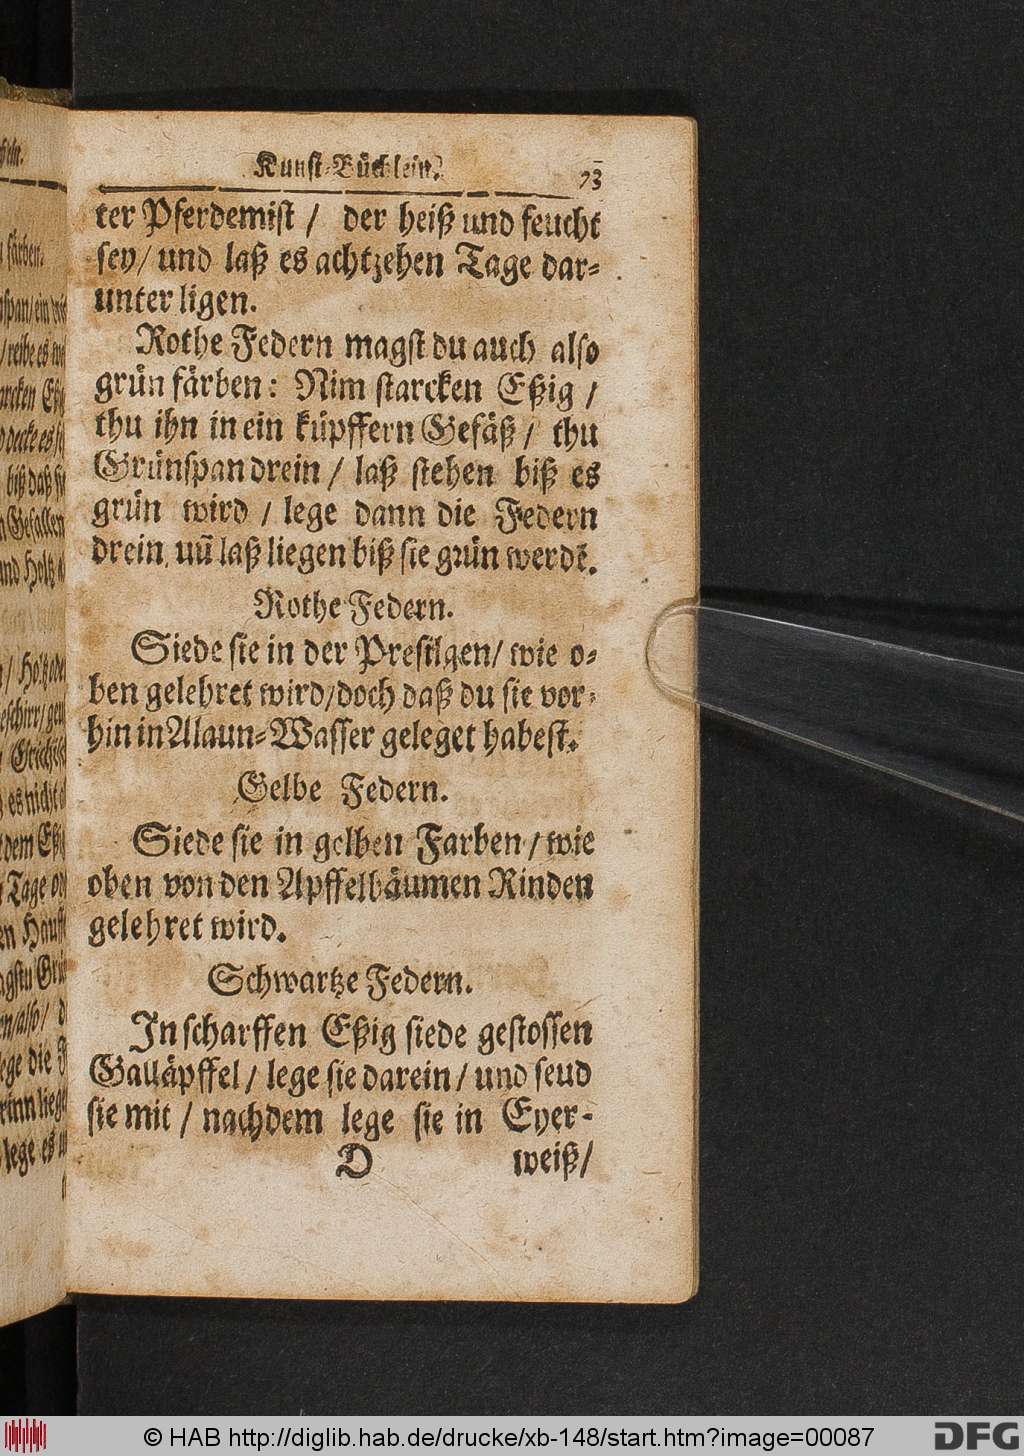 Kunst-Büchlein. 73
ter Pferdemist / der heiß und feucht
sey / und laß es achtzehen Tage dar-
unter ligen.
Rothe Federn magst du auch also
grün färben: Nim starcken Eßig /
thu ihn in ein küpffern Gefäß / thu
Grünspan drein / laß stehen biß es
grün wird / lege dann die Federn
drein, uñ laß liegen biß sie grün werdẽ.
Rothe Federn.
Siede sie in der Presilgen / wie o-
ben gelehret wird / doch daß du sie vor-
hin in Alaun-Wasser geleget habest.
Gelbe Federn.
Siede sie in gelben Farben / wie
oben von den Apffelbäumen Rinden
gelehret wird.
Schwartze Federn.
In scharffen Eßig siede gestossen
Galläpffel / lege sie darein / und seud
sie mit / nachdem lege sie in Eyer-
D weiß /
© HAB http://diglib.hab.de/drucke/xb-148/start.htm?image=00087
DFG